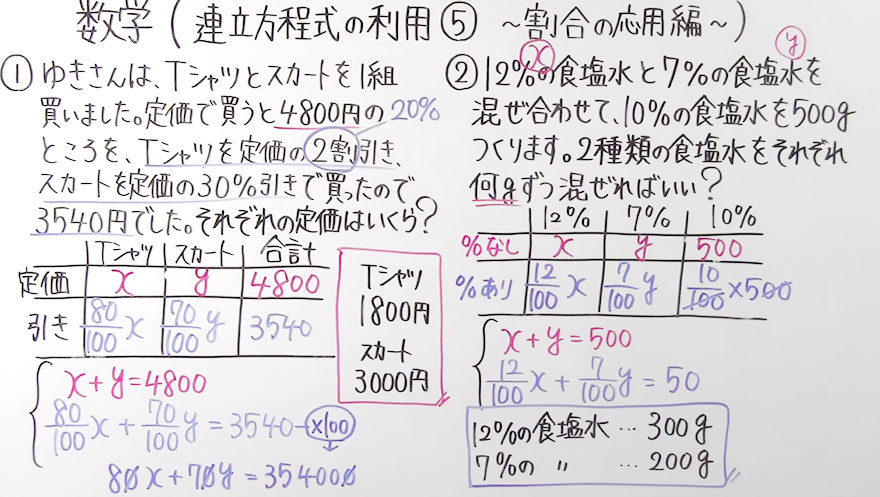 数学(連立方程式の利用⑤ ~割合の応用編~)
①ゆきさんは、Tシャツとスカートを1組
買いました。定価で買うと4800円の 20%
ところを、Tシャツを定価の2割引き、
スカートを定価の30%引きで買ったので
3540円でした。それぞれの定価はいくら?
Tシャツ スカート 合計
定価 x y 4800
引き 80/100x 70/100y 3540
x+y=4800
80/100x+70/100y=3540 ×100
80x+70y=354000
Tシャツ
1800円
スカート
3000円
x y
②12%の食塩水と7%の食塩水を
混ぜ合わせて、10%の食塩水を500g
つくります。2種類の食塩水をそれぞれ
何gずつ混ぜればいい?
12% 7% 10%
%なし x y 500
%あり 12/100x 7/100y 10/100×500
x+y=500
12/100x+7/100y=50
12%の食塩水…300g
7%の 〃 …200g